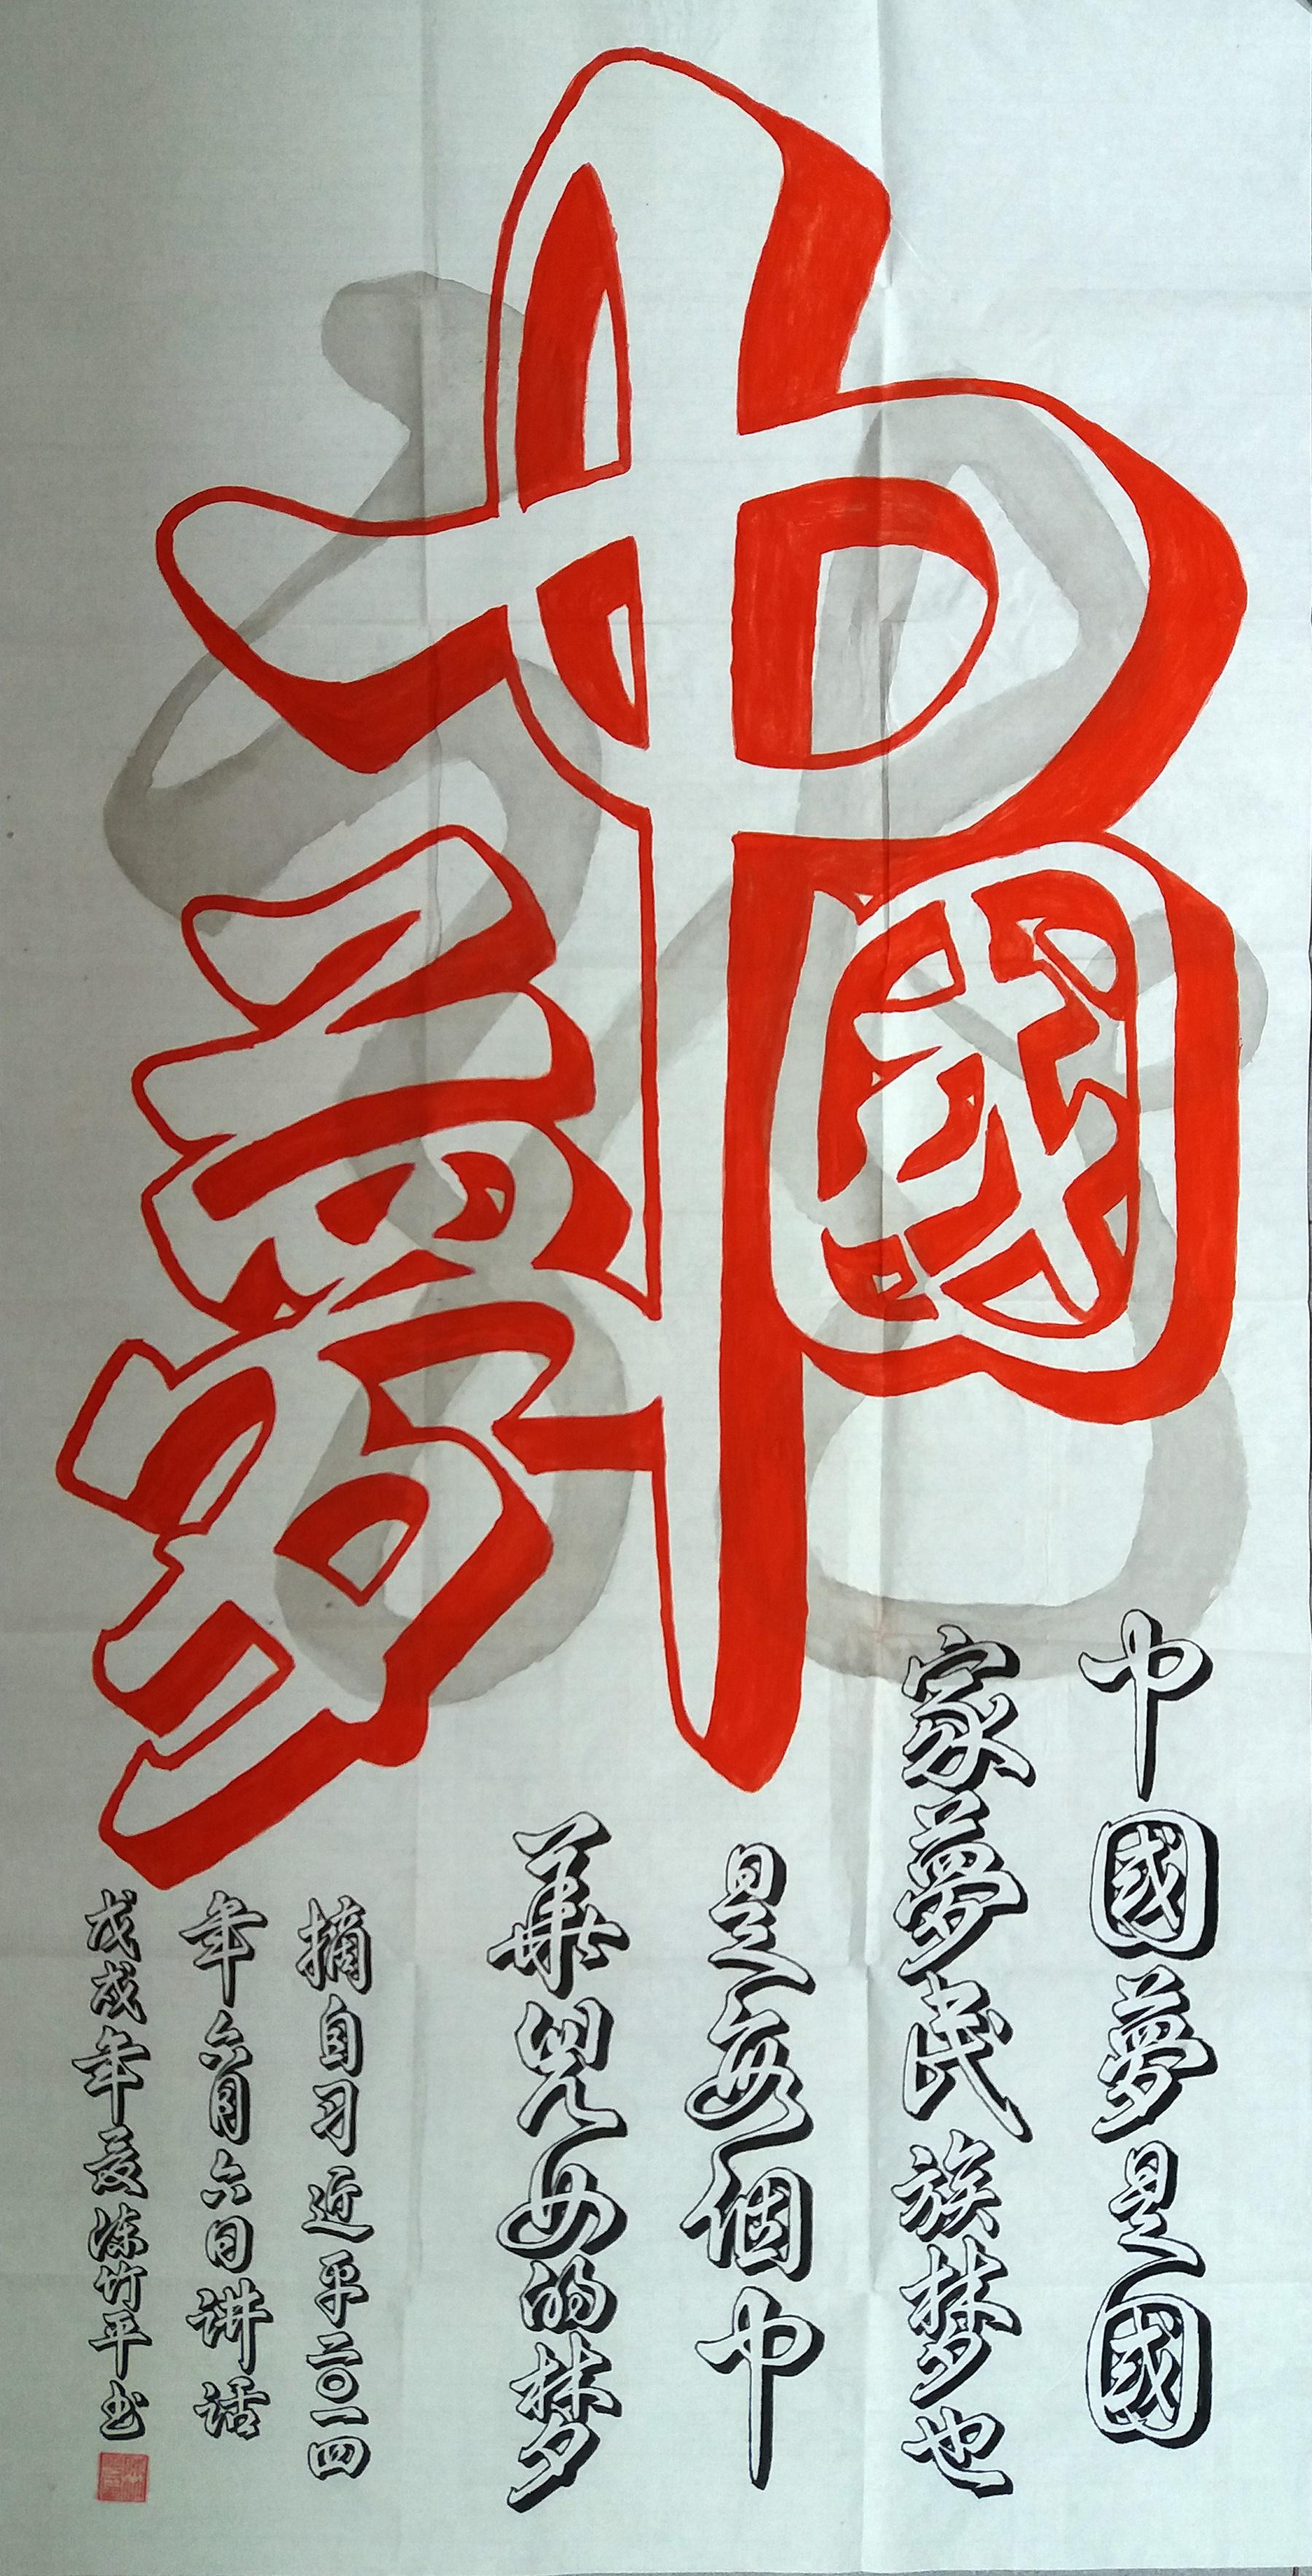 中國夢
中國夢是國
家夢民族梦也
是每個中
華兒女的梦
摘自习近平二〇一四
年六月六日讲话
戊戌年夏陈竹平书